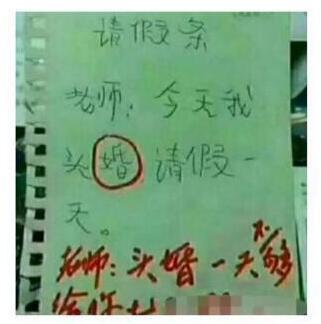 请假条
老师：今天我
头婚请假一
天。
老师：头婚一天不够
给你七